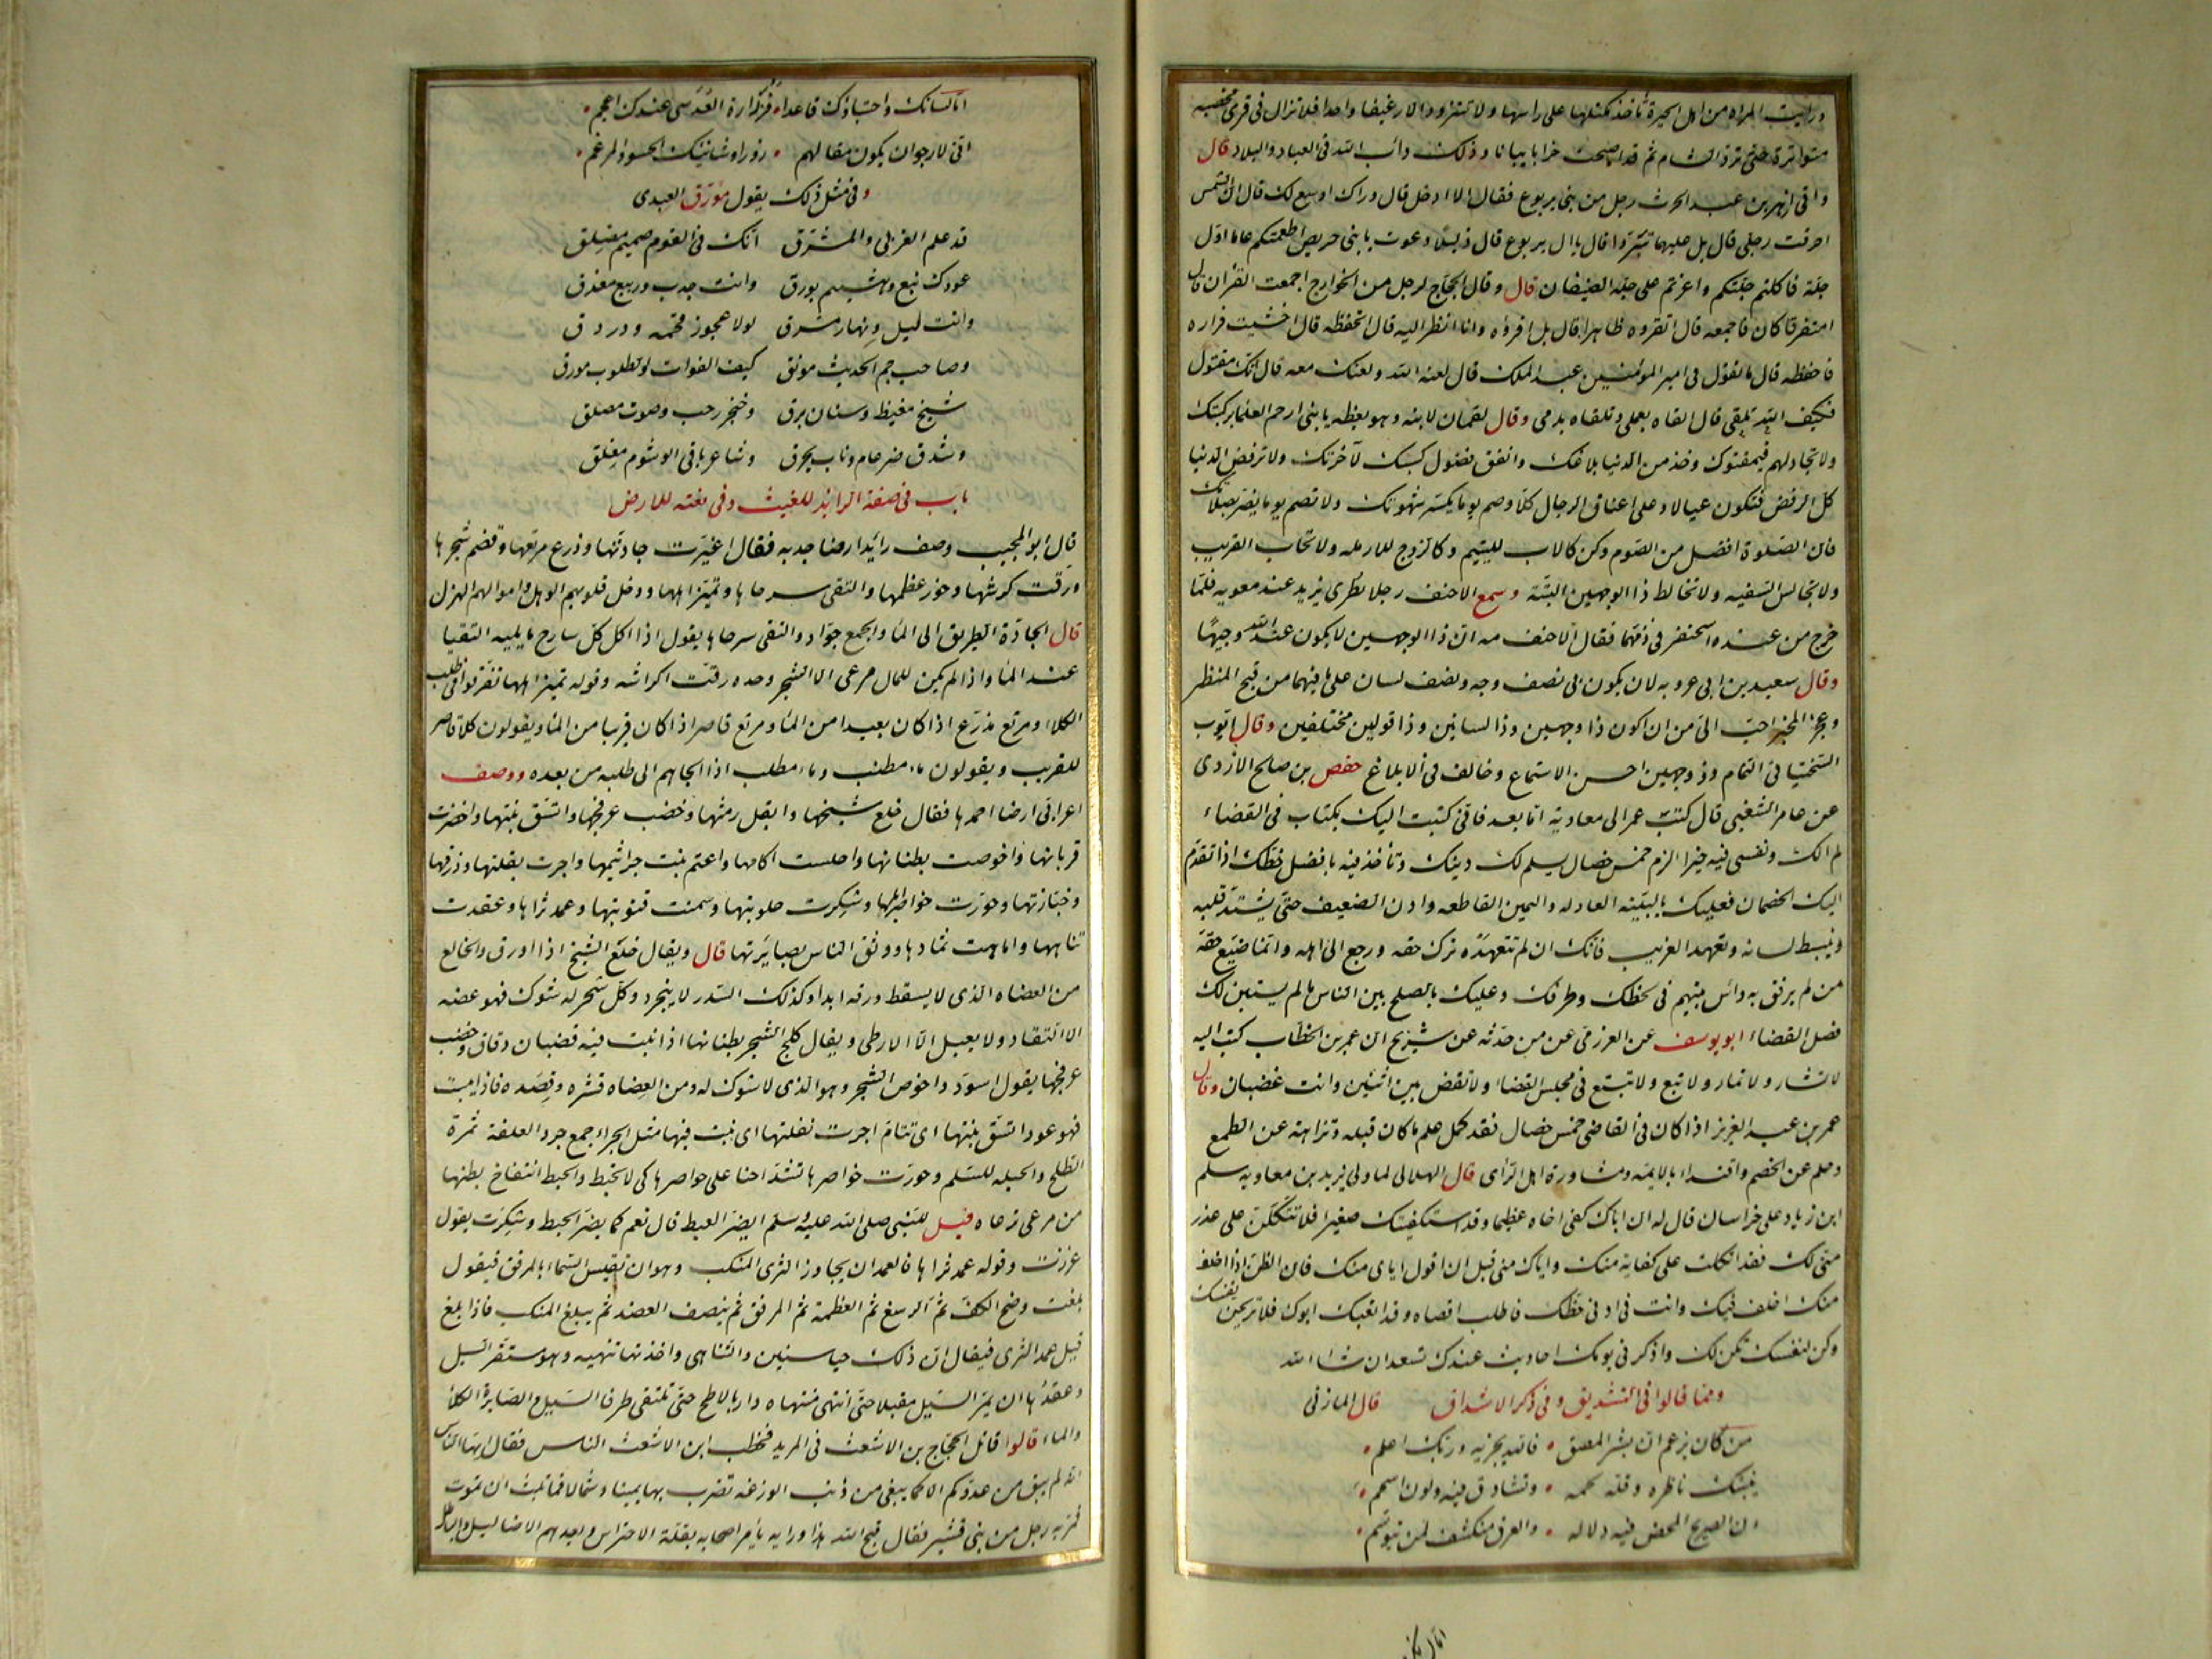 ورايت المراه من اهل الحيرة تأخذ مكتلها على راسها ولا تتزود الا رغيفا واحدا فلا تزال في قرى مخصبه
متواترة حتى ترد الشام ثم قد اصبحت خرابا يبابا وذلك دأب الله في العباد والبلاد قال
واتى ازهر بن عبد الحرث رجل من بني يربوع فقال الا ادخل قال وراك اوسع لك قال ان الشمس
احرقت رجلي قال بل عليهما تبردا قال يال يربوع قال ذليلا دعوت يا بني حريص اطعمتكم عاما اول
جلة فاكلتم جلتكم واغرتم على جلة الضيفان قال وقال الحجاج لرجل من الخوارج اجمعت القران قال
امتفرقا كان فاجمعه قال اتقروه ظاهرا قال بل اقروه وانا انظر اليه قال اتحفظه قال اخشيت فراره
فاحفظه قال ما تقول في امير المؤمنين عبد الملك قال لعنه الله ولعنك معه قال انك مقتول
فكيف الله تلقى قال القاه بعملي وتلقاه بدمي وقال لقمان لابنه وهو يعظه يا بني ازحم العلما بركبتك
ولا تجادلهم فيمقتوك وخذ من الدنيا بلاغك وانفق فضول كسبك لآخرتك ولا ترفض الدنيا
كل الرفض فتكون عيالا وعلى اعناق الرجال كلا وصم يوما يكسر شهوتك ولا تصم يوما يضر بصلاتك
فان الصلوة افضل من الصوم وكن كالاب لليتيم وكالزوج للارمله ولا تحاب القريب
ولا تجالس السفيه ولا تخالط ذا الوجهين البتة وسمع الاحنف رجلا يطرى يزيد عند معويه فلما
خرج من عنده اسحنفر في ذمهما فقال الاحنف مه ان ذا الوجهين لا يكون عند الله وجيها
وقال سعيد بن ابي عروبه لان يكون لي نصف وجه ونصف لسان على ما فيهما من قبح المنظر
وعجز المخبر احب الي من ان اكون ذا وجهين وذا لسانين وذا قولين مختلفين وقال ايوب
السختياني النمام ذو وجهين احسن الاستماع وخالف في الابلاغ حفص بن صالح الازدى
عن عامر الشعبي قال كتب عمر الى معاوية اما بعد فاني كتبت اليك بكتاب في القضاء
لم الك ونفسي فيه خيرا الزم خمس خصال يسلم لك دينك وتأخذ فيه بافضل حظك اذا تقدم
اليك الخصمان فعليك بالبينه العادله واليمين القاطعه وادن الضعيف حتى يشتد قلبه
وينبسط لسانه وتعهد الغريب فانك ان لم تتعهده ترك حقه ورجع الى اهله وانما ضيع حقه
من لم يرفق به وآس بينهم في لحظك وطرفك وعليك بالصلح بين الناس ما لم يستبن لك
فصل القضاء ابو يوسف عن العرزمى عن من حدثه عن شريح ان عمر بن الخطاب كتب اليه
لا تشار ولا تمار ولا تبع ولا تبتع في مجلس القضا ولا تقض بين اثنين وانت غضبان وقال
عمر بن عبد العزيز اذا كان في القاضي خمس خصال فقد كمل علم ما كان قبله ونزاهة عن الطمع
وحلم عن الخصم واقتداء بالايمه ومشاورة اهل الرأى قال الهلالى لما ولى يزيد بن معاويه سلم
ابن زياد على خراسان قال له ان اباك كفى اخاه عظيما وقد استكفيتك صغيرا فلا تتكلن على عذر
منى لك فقد اتكلت على كفاية منك واياك منى قبل ان اقول اياى منك فان الظن اذا اخلف
منك اخلف فيك وانت في ادنى حظك فاطلب اقصاه وقد اتعبك ابوك فلا تريحن نفسك
وكن لنفسك تكن لك واذكر في يومك احاديث عندك تسعد ان شاء الله
ومما قالوا في التشديق وفي ذكر الاشداق قال المازني
من كان يزعم ان بشر الملصق فالله يجزيه وربك اعلم
ينبيك ناظره وقلة لحمه وتشادق فيه ولون اسحم
ان الصريح المحض فيه دلاله والعرق منكشف لمن يتوسم
اما لسانك واحتباؤك قاعدا فزرارة العدسى عندك اعجم
انى لارجوان يكون مقالهم زورا وشانيك الحسود المرغم
وفي مثل ذلك يقول مورق العبدى
قد علم الغربى والمشرق انك في القوم صميم ملصق
عودك نبع وهشيم بورق وانت جدب وربيع مغدق
وانت ليل ونهار مشرق لولا عجوز قحمه ودردق
وصاحب جم الحديث مونق كيف الفوات والطلوب مورق
شيخ مغيظ وسنان يبرق وحنجر رحب وصوت مصلق
وشدق ضرغام وناب يحرق وشاعر باقى الوشوم مفلق
باب في صفة الرائد للغيث وفي نعته للارض
قال ابو المجيب وصف رائد ارضا جدبه فقال اغبرت جادتها وذرع مرتعها وقضم شجرها
ورقت كرشها وخور عظمها والتقى سرحاها وتميز اهلها ودخل قلوبهم الوهل واموالهم الهزل
قال الجادة الطريق الى الماء والجمع جواد والتقى سرحاها يقول اذا اكل كل سارح ما يليه التقيا
عند الماء واذا لم يكن للمال مرعى الا الشجر وحده رقت اكراشه وقوله تميز اهلها تفرقوا فى طلب
الكلاء ومرتع مذرع اذا كان بعيدا من الماء ومرتع قاصر اذا كان قريبا من الماء ويقولون كلأ قاصر
للقريب ويقولون ماء مطنب وماء مطلب اذا الجاهم الى طلبه من بعده ووصف
اعرابى ارضا احمدها فقال خلع شيخها وابقل رمثها وخضب عرفجها واتسق نبتها واخضرت
قريانها واخوصت بطنانها واحلست اكامها واعتم نبت جراثيمها واجرت بقلتها وذرقها
وخبازتها وحورت خواصر ابلها وشكرت حلوبتها وسمنت قتوبتها وعمد ثراها وعقدت
تناهيها واماهت ثمادها ووثق الناس بصائرتها قال ويقال خلع الشيخ اذا اورق والخالع
من العضاه الذى لا يسقط ورقه ابدا وكذلك السدر لا يتجرد وكل شجر له شوك فهو عضه
الا القتاد ولا يعبل الا الارطى ويقال كلح الشجر بطنانها اذا نبت فيه قضبان دقاق وخضب
عرفجها يقول اسود واخوص الشجر وهو الذى لا شوك له ومن العضاه قشره وقصده فاذا يبست
فهو عود اتسق نبتها اى تتام اجرت نقلتها اى نبت فيها مثل الجراء جمع جرو العلفة ثمرة
الطلح والحبله للسلم وحورت خواصرها تشد احنا على خواصرها كى لا تحبط والحبط انتفاخ بطنها
من مرعى ترعاه قيل للنبي صلى الله عليه وسلم ايضر الغبط قال نعم كما يضر الخبط وشكرت يقول
غزرت وقوله عمد ثراها فالعمد ان يجاوز الثرى المنكب وهو ان تقيس السماء بالمرفق فيقول
بلغت وضح الكف ثم الرسغ ثم العظمة ثم المرفق ثم ينصف العضد ثم يبلغ المنكب فاذا بلغ
قيل عمد الثرى فيقال ان ذلك حيا سنين والتناهى واخذتها تنهيه وهو مستقر السيل
وعقدها ان يمر السيل مقبلا حتى انتهى منتهاه دار بالاطح حتى تلتقى طرفا السيل والصايرة الكلأ
والماء قالوا قاتل الحجاج بن الاشعث في المربد فخطب ابن الاشعث الناس فقال ايها الناس
انه لم يبق من عدوكم الا كما يبقى من ذنب الوزغه تضرب بها يمينا وشمالا فما تلبث ان تموت
فمر به رجل من بني قشير فقال قبح الله هذا ورايه يأمر اصحابه بقلة الاحتراس ويعدهم الاضاليل والباطل